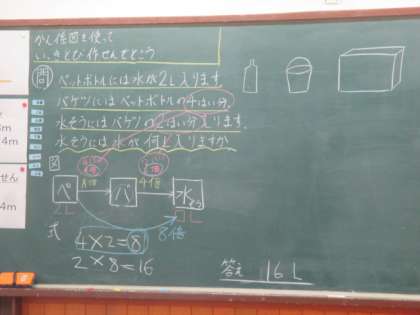 かん係図を使って
いっきとび作せんでとこう
問 ペットボトルには水が2L入ります。
バケツにはペットボトルの4はい分、
水そうにはバケツの2はい分入ります。
水そうには水が何L入りますか
図
4倍
ペ バ 水そう
2L □L
8倍
式 4×2=8
2×8=16
答え 16L
m
4m
せん
4m